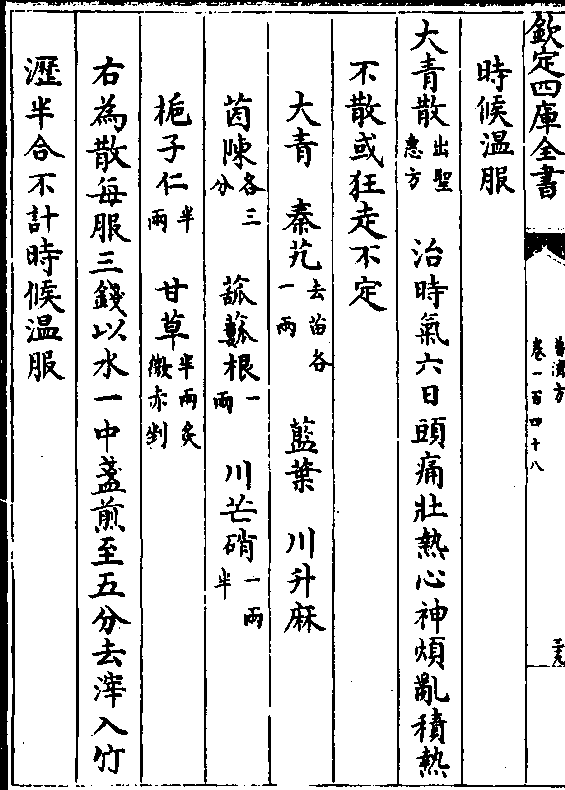 欽定四庫全書
普濟方
卷一百四十八
時候温服
大青散出聖惠方 治時氣六日頭痛壯熱心神煩亂積熱
不散或狂走不定
大青 秦艽去苗各一兩 藍葉 川升麻
茵陳各三分 蓏𧃒根一兩 川芒硝一兩半
梔子仁半兩 甘草半兩炙微赤剉
右為散每服三錢以水一中盞煎至五分去滓入竹
瀝半合不計時候温服